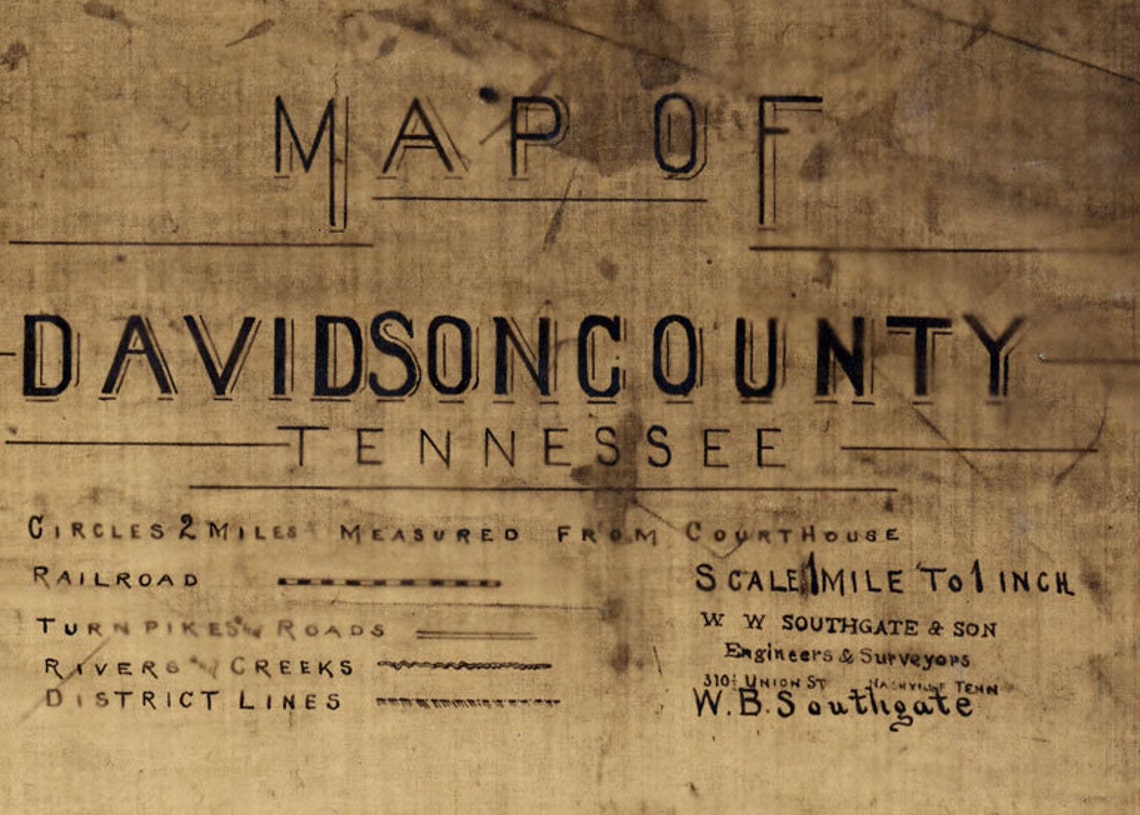 MAP OF
DAVIDSON COUNTY
TENNESSEE
CIRCLES 2 MILES MEASURED FROM COURTHOUSE
RAILROAD
TURNPIKES & ROADS
RIVERS & CREEKS
DISTRICT LINES
SCALE 1 MILE TO 1 INCH
W W SOUTHGATE & SON
Engineers & Surveyors
310½ UNION ST NASHVILLE TENN
W. B. Southgate